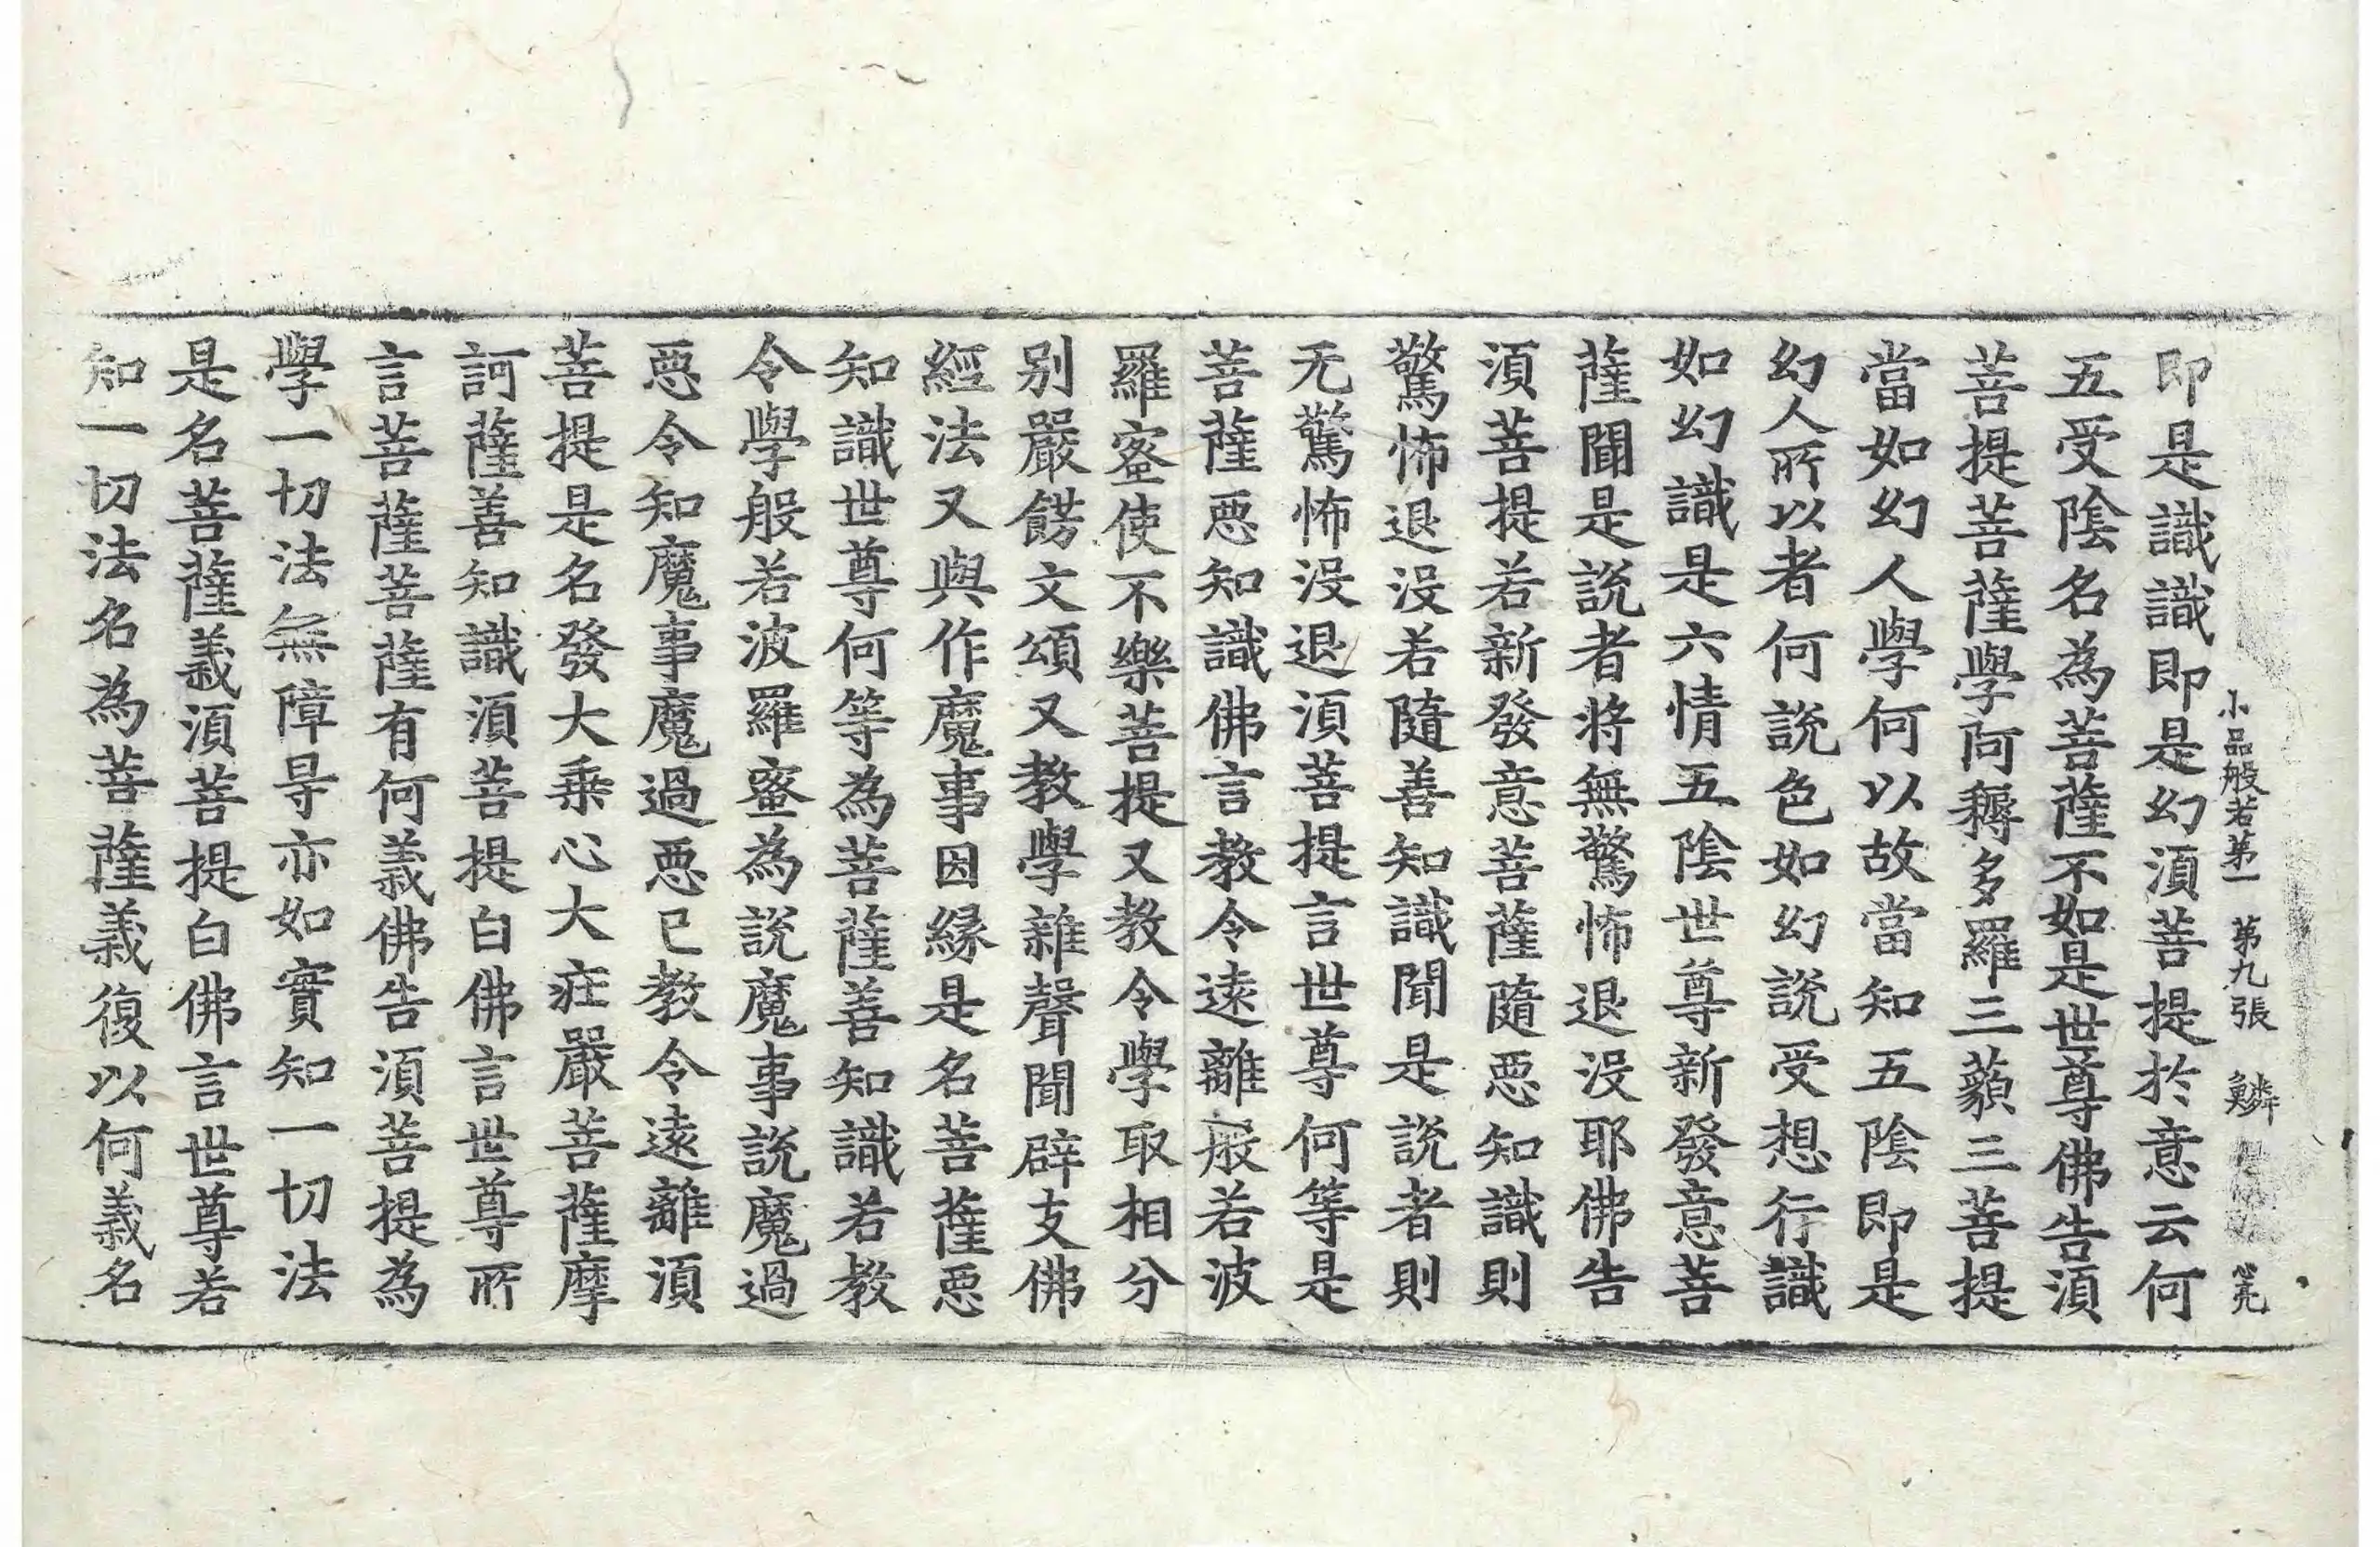 小品般若第一　第九張　鱗
即是識識即是幻須菩提於意云何
五受陰名為菩薩不如是世尊佛告須
菩提菩薩學阿耨多羅三藐三菩提
當如幻人學何以故當知五陰即是
幻人所以者何說色如幻說受想行識
如幻識是六情五陰世尊新發意菩
薩聞是說者将無驚怖退沒耶佛告
須菩提若新發意菩薩隨惡知識則
驚怖退沒若隨善知識聞是說者則
无驚怖沒退須菩提言世尊何等是
菩薩惡知識佛言教令遠離般若波
羅蜜使不樂菩提又教令學取相分
别嚴餝文頌又教學雜聲聞辟支佛
經法又與作魔事因緣是名菩薩惡
知識世尊何等為菩薩善知識若教
令學般若波羅蜜為說魔事說魔過
惡令知魔事魔過惡已教令遠離須
菩提是名發大乘心大莊嚴菩薩摩
訶薩善知識須菩提白佛言世尊所
言菩薩菩薩有何義佛告須菩提為
學一切法無障㝵亦如實知一切法
是名菩薩義須菩提白佛言世尊若
知一切法名為菩薩義復以何義名